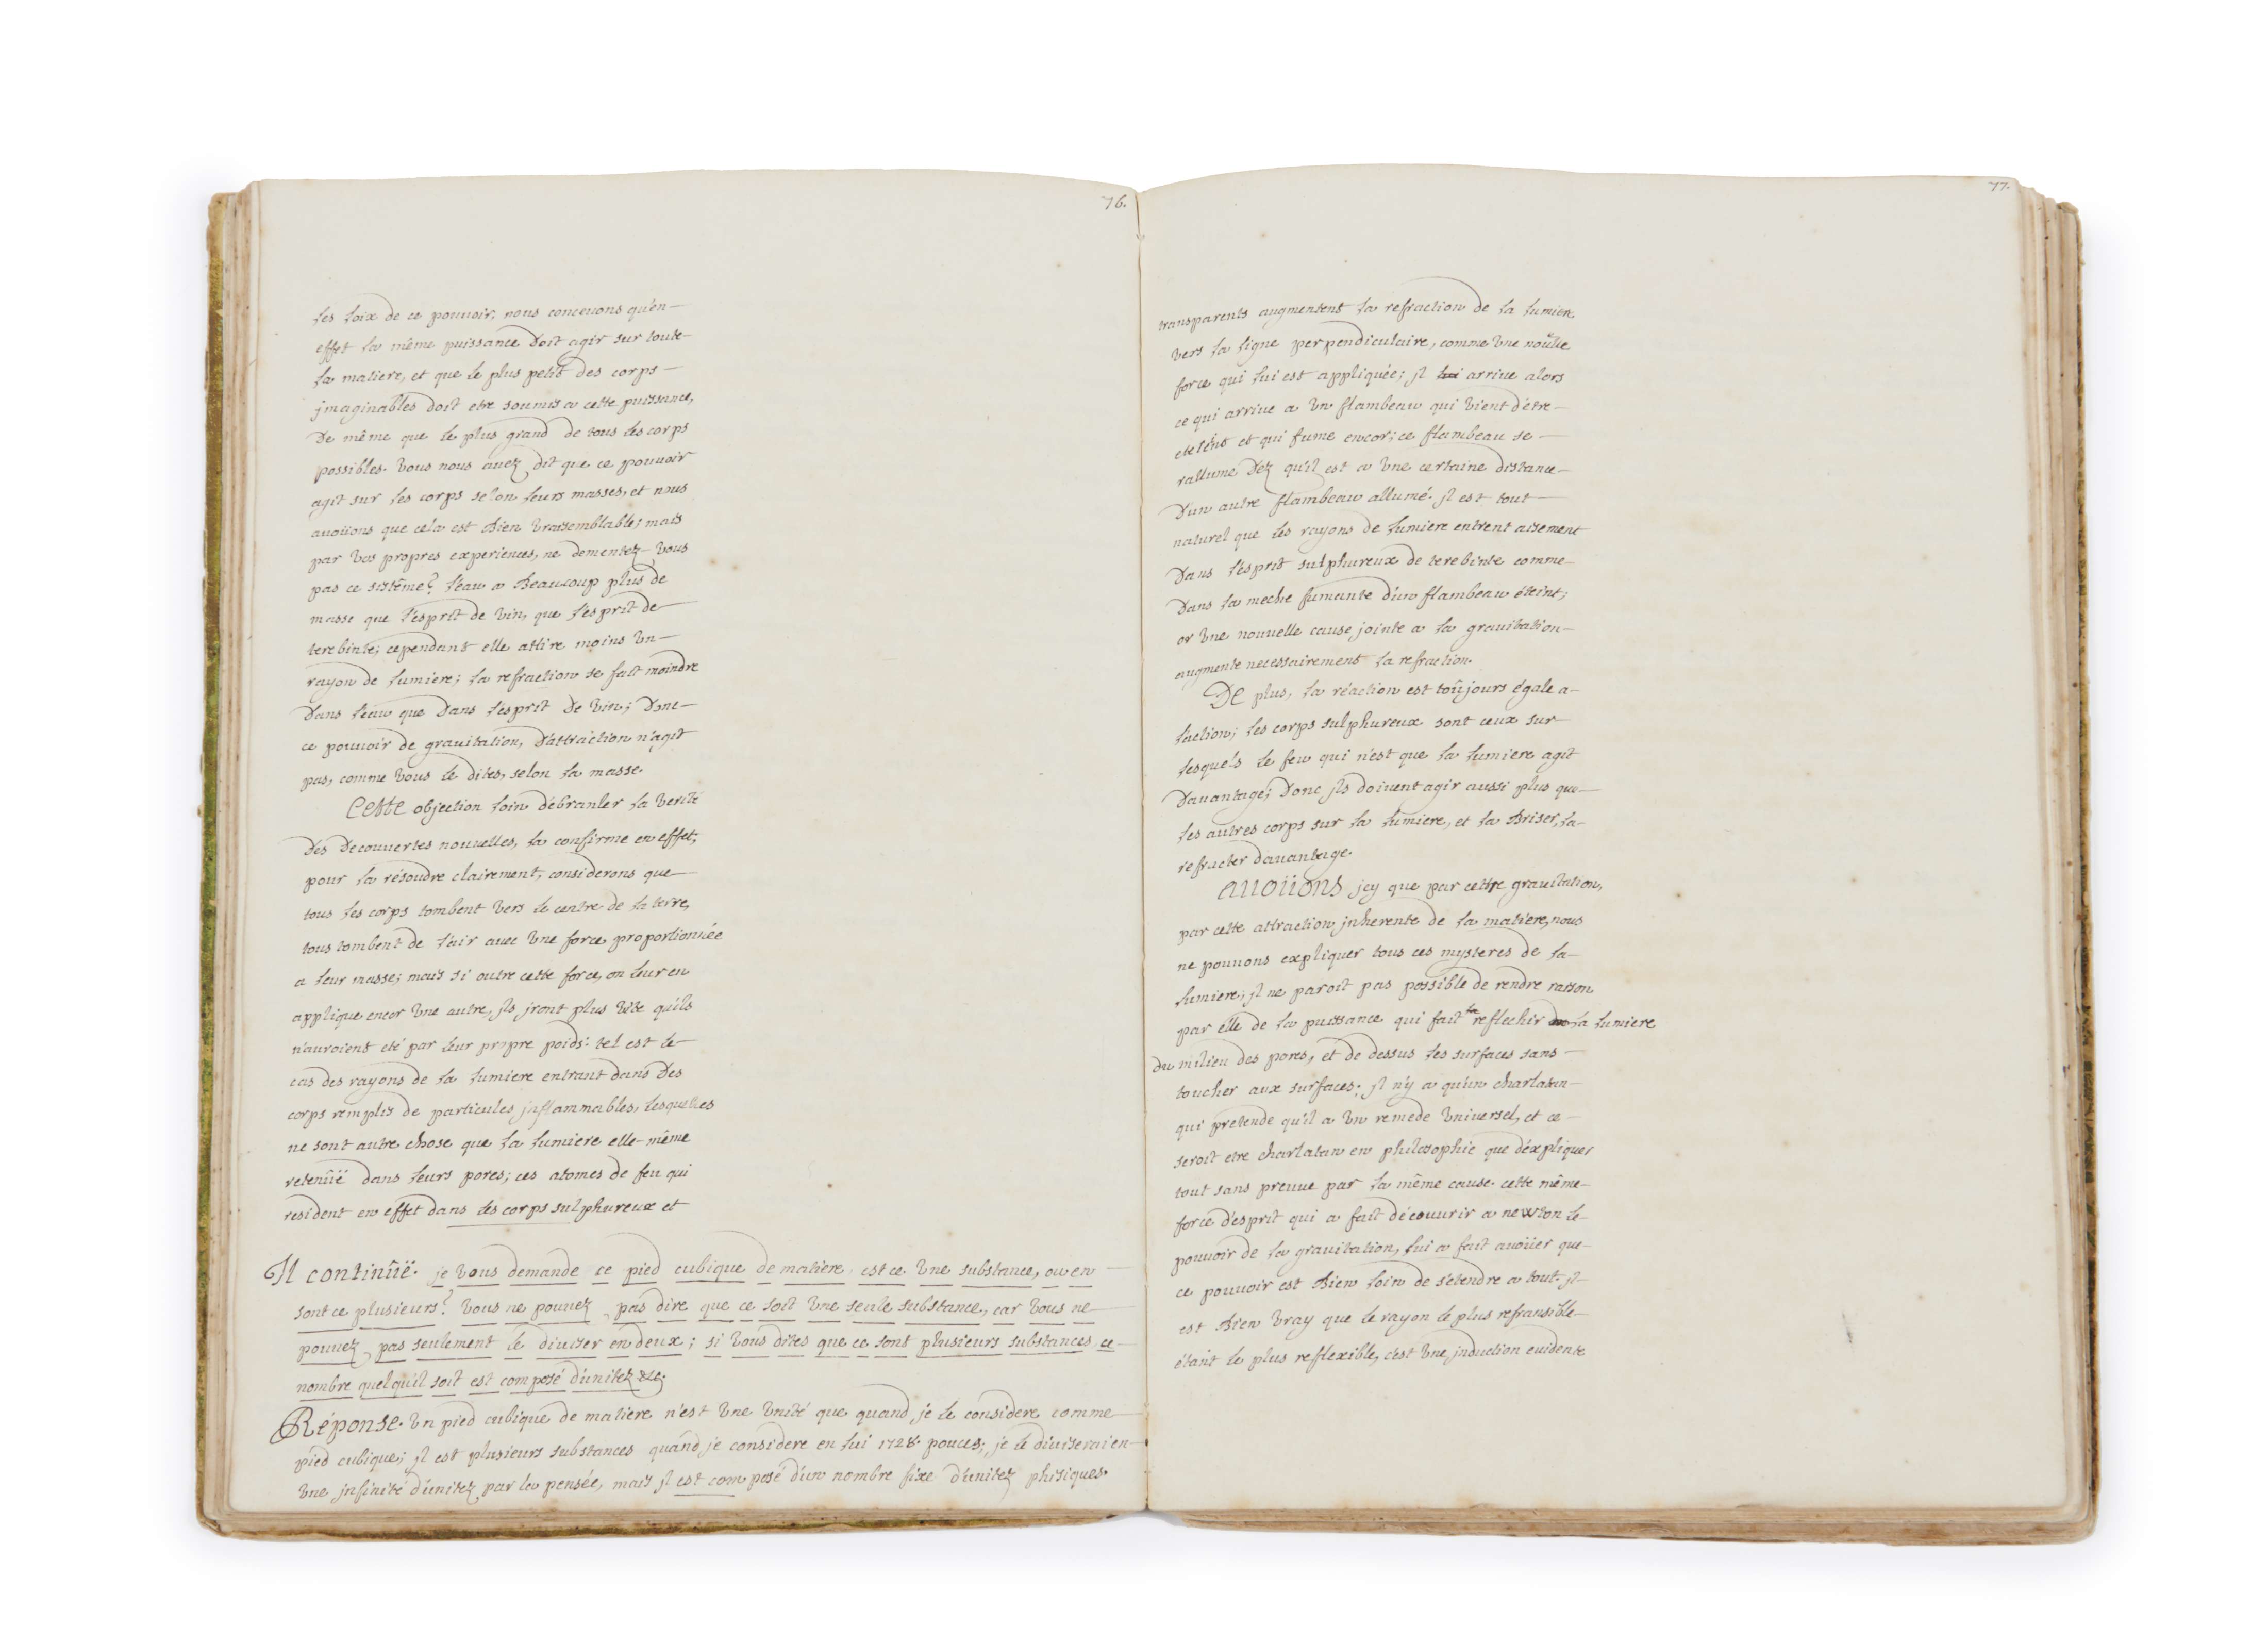 76.
les loix de ce pouvoir, nous conceuons qu'en
effet la même puissance doit agir sur toute
la matiere, et que le plus petit des corps
jmaginables doit etre soumis a cette puissance,
De même que le plus grand de tous les corps
possibles. Vous nous auez dit que ce pouuoir
agit sur les corps selon leurs masses, et nous
auoüons que cela est Bien vraisemblable; mais
par vos propres experiences, ne dementez vous
pas ce sistême? l'eau a Beaucoup plus de
masse que l'esprit de vin, que l'esprit de
terebinte; cependant elle attire moins un
rayon de lumiere; la refraction se fait moindre
Dans l'eau que Dans l'esprit De vin; Donc
ce pouuoir de grauitation, d'attraction n'agit
pas, comme vous le dites, selon la masse.
Cette objection loin d'ébranler la verité
Des Decouuertes nouuelles, la confirme en effet;
pour la résoudre clairement, considerons que
tous les corps tombent vers le centre de la terre,
tous tombent de l'air auec une force proportionnée
a leur masse; mais si outre cette force, on leur en
applique encor une autre, jls jront plus vite qu'ils
n'auroient eté par leur propre poids. tel est le
cas des rayons de la lumiere entrant dans Des
corps remplis de particules jnflammables, lesquelles
ne sont autre chose que la lumiere elle-même
retenüe dans leurs pores; ces atomes de feu qui
resident en effet dans les corps sulphureux et
Il continüe. je vous demande ce pied cubique de matiere, est ce une substance, ou en
sont ce plusieurs? vous ne pouuez pas dire que ce soit une seule substance, car vous ne
pouuez pas seulement le diuiser en deux; si vous dites que ce sont plusieurs substances ce
nombre quel qu'il soit est composé d'unitez &c.
Réponse. un pied cubique de matiere n'est une unité que quand je le considere comme
pied cubique; jl est plusieurs substances quand je considere en lui 1728. pouces; je le diuiserai en
une jnfinité d'unitez par la pensée, mais jl est composé d'un nombre fixe d'unitez phisiques.
77.
transparents augmentent la refraction de la lumiere
vers la ligne perpendiculaire, comme une
force qui lui est appliquée; jl lui arriue alors
ce qui arriue a un flambeau qui vient d'étre
et qui fume encor; ce flambeau se
rallume Dez qu'il est a une certaine distance
D'un autre flambeau allumé. jl est tout
naturel que les rayons de lumiere entrent aisement
Dans l'esprit sulphureux de terebinte comme
Dans la meche fumante d'un flambeau éteint;
or une nouuelle cause jointe a la grauitation
augmente necessairement la refraction.
De plus, la réaction est toûjours égale a
l'action; les corps sulphureux sont ceux sur
lesquels le feu qui n'est que la lumiere agit
Dauantage; Donc jls doiuent agir aussi plus que
les autres corps sur la lumiere, et la Briser, la
refracter dauantage.
auoüons jcy que par cette grauitation,
par cette attraction jnherente de la matiere, nous
ne pouuons expliquer tous ces mysteres de la
lumiere; jl ne paroit pas possible de rendre raison
par elle de la puissance qui fait reflechir la lumiere
du milieu des pores, et de dessus les surfaces sans
toucher aux surfaces; jl n'y a qu'un charlatan
qui pretende qu'il a un remede vniuersel, et ce
seroit etre charlatan en philosophie que d'expliquer
tout sans preuue par la même cause. cette même
force d'esprit qui a fait découurir a newton le
pouuoir de la grauitation, lui a fait auoüer que
ce pouuoir est Bien loin de s'etendre a tout. jl
est Bien vray que le rayon le plus refransible
étant le plus refflexible, c'est une jnduction euidente